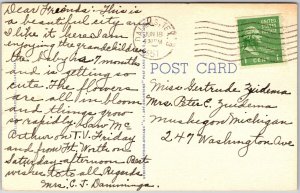 Dear Friends: This is
a beautiful city and
I like it here. I am
enjoying the grandchildren
the baby is 9 months
and is getting so
cute. The flowers
are all in bloom
and things grow
so rapidly. Saw Mc
Arthur on T.V. Friday
and from Ft. Worth on
Saturday afternoon. Best
wishes to all. Regards
Mrs. C. J. Dannings.
POST CARD
Miss Gertrude Zuidema
Mrs Peter C. Zuidema
Muskegon Michigan
247 Washington Ave